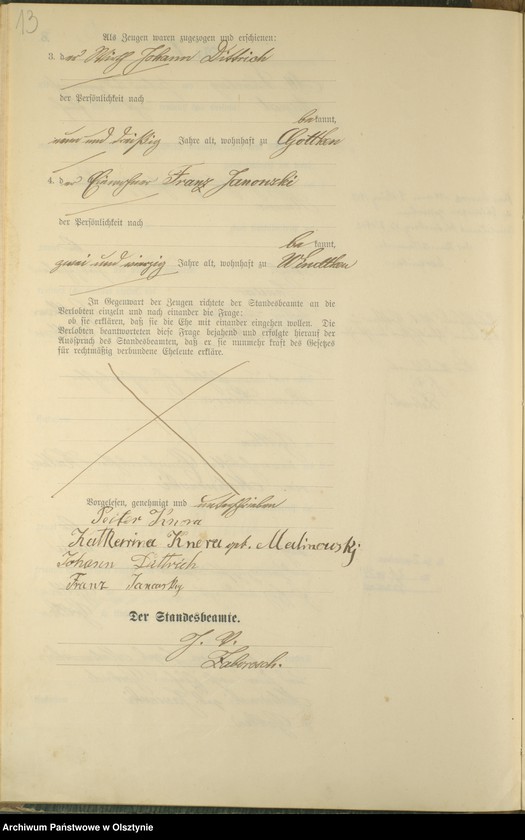 13
Als Zeugen waren zugezogen und erschienen:
3. der Wirth Johann Dittrich
der Persönlichkeit nach
be kannt,
neun und dreißig Jahre alt, wohnhaft zu Göttken
4. der Franz Janowski
der Persönlichkeit nach
be kannt,
zwei und vierzig Jahre alt, wohnhaft zu
In Gegenwart der Zeugen richtete der Standesbeamte an die
Verlobten einzeln und nach einander die Frage:
ob sie erklären, daß sie die Ehe mit einander eingehen wollen. Die
Verlobten beantworteten diese Frage bejahend und erfolgte hierauf der
Ausspruch des Standesbeamten, daß er sie nunmehr kraft des Gesetzes
für rechtmäßig verbundene Eheleute erkläre.
Vorgelesen, genehmigt und unterschrieben
Peiter Knera
Katherina Knera geb. Malinowski
Johann Dittrich
Franz Janowsky
Der Standesbeamte.
J. V.
Archiwum Państwowe w Olsztynie